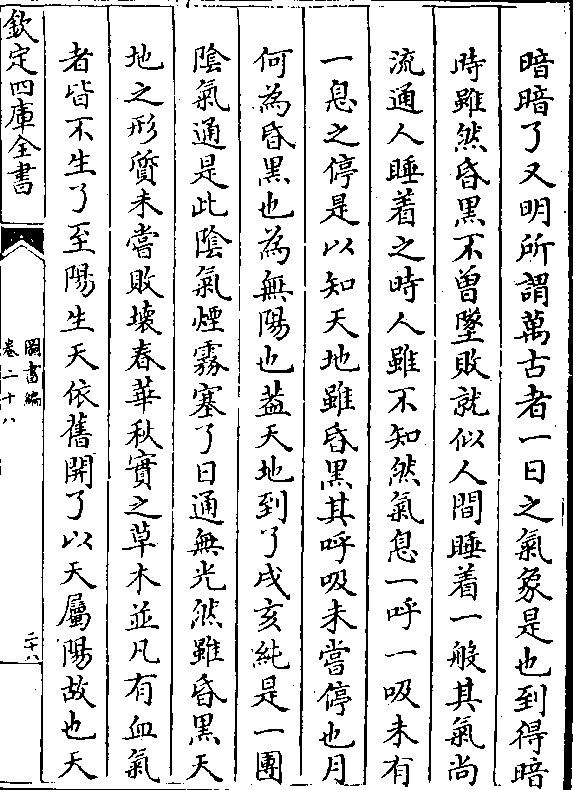 暗暗了又明所謂萬古者一日之氣象是也到得暗
時雖然昏黑不曾墜敗就似人間睡着一般其氣尚
流通人睡着之時人雖不知然氣息一呼一吸未有
一息之停是以知天地雖昏黑其呼吸未嘗停也月
何為昏黑也為無陽也葢天地到了戌亥純是一團
陰氣通是此陰氣煙霧塞了日通無光然雖昏黑天
地之形質未嘗敗壞春華秋實之草木並凡有血氣
者皆不生了至陽生天依舊開了以天屬陽故也天
欽定四庫全書
圖書編
卷二十八
二十八